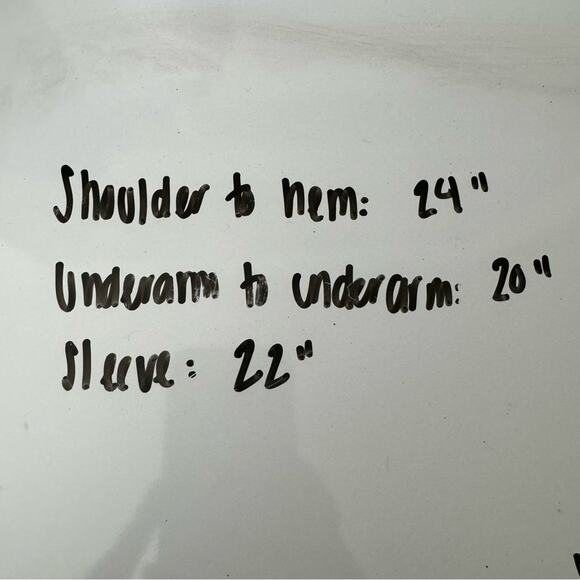 Shoulder to hem: 24"
Underarm to underarm: 20"
Sleeve: 22"